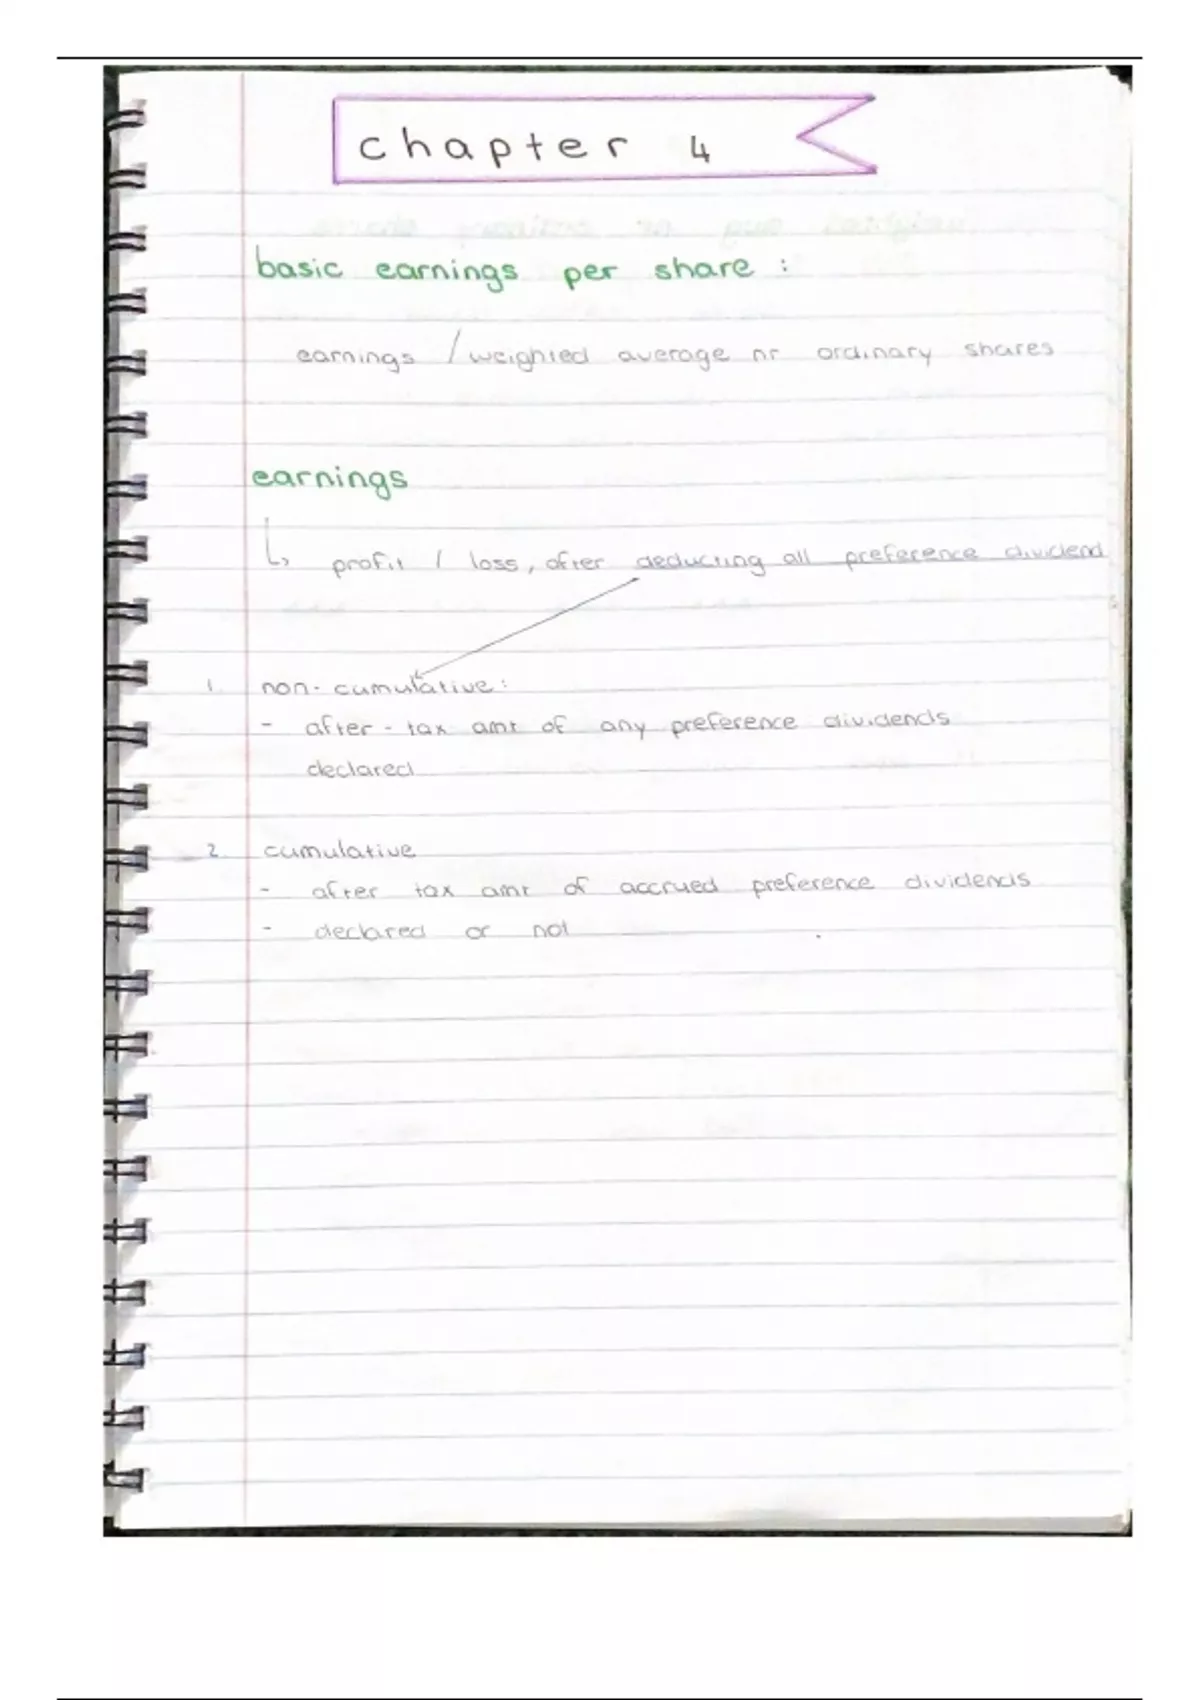 chapter 4
basic earnings per share :
earnings / weighted average nr ordinary shares
earnings
↳ profit / loss, after deducting all preference dividend
1. non-cumulative:
- after-tax amt of any preference dividends
declared
2. cumulative
- after tax amt of accrued preference dividends
- declared or not